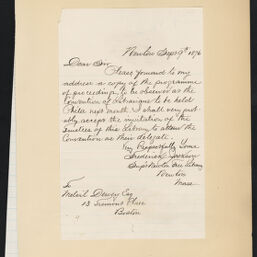 Newton Sept 9th 1876
Dear Sir,
Please forward to my
address a copy of the programme
of proceedings to be observed at the
Convention of Librarians to be held
Phila next month. I shall very prob-
ably accept the invitation of the
Trustees of this Library to attend the
Convention as their delegate.
Very Respectfully Yours
Frederick Jackson
Supt Newton Free Library
Newton
Mass.
To
Melvil Dewey Esq
13 Tremont Place
Boston